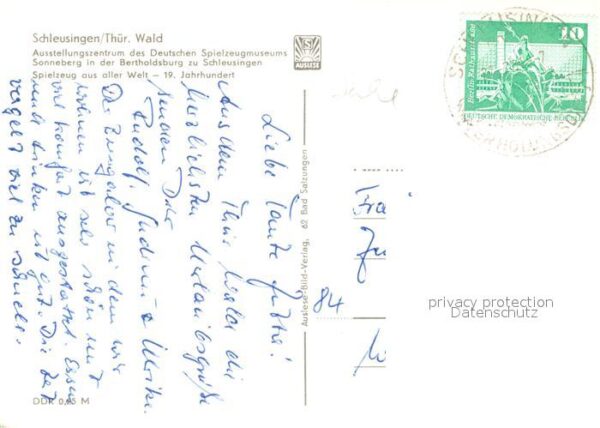 Schleusingen/Thür. Wald
Ausstellungszentrum des Deutschen Spielzeugmuseums
Sonneberg in der Bertholdsburg zu Schleusingen
Spielzeug aus aller Welt – 19. Jahrhundert
AUSLESE
Liebe Tante
Aus dem Thür. Wald die
herzlichsten Urlaubsgrüße
senden Dir
Rudolf, & Ulrike.
Der Bungalow in dem wir
wohnen ist sehr schön und
mit Komfort ausgestattet. Essen
und trinken ist gut. Die Zeit
vergeht viel zu schnell.
DDR 0,25 M
Auslese-Bild-Verlag, 62 Bad Salzungen
10
Berlin, Rathausstraße
DEUTSCHE DEMOKRATISCHE REPUBLIK
84
privacy protection
Datenschutz